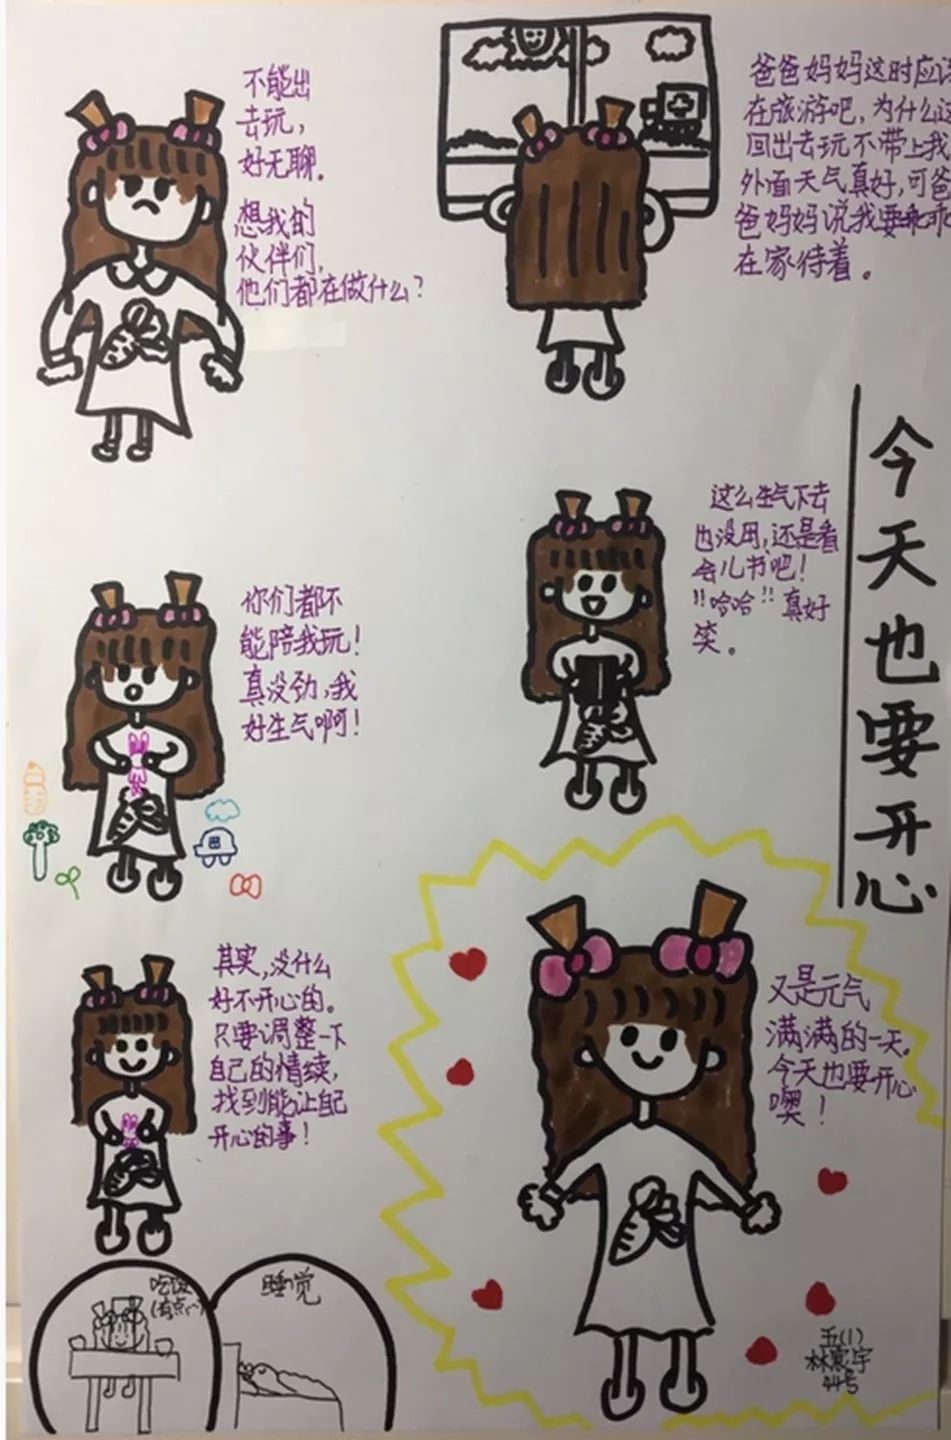 不能出
去玩，
好无聊。
想我的
伙伴们，
他们都在做什么？
爸爸妈妈这时应
在旅游吧，为什么这
回出去玩不带上我
外面天气真好，可爸
爸妈妈说我要乖乖
在家待着。
今天也要开心
这么生气下去
也没用，还是看
会儿书吧！
"哈哈"真好
笑。
你们都不
能陪我玩！
真没劲，我
好生气啊！
其实，没什么
好不开心的。
只要调整一下
自己的情续，
找到能让自己
开心的事！
又是元气
满满的一天。
今天也要开心
噢！
吃饭
睡觉
五(1)
林寰宇
44号